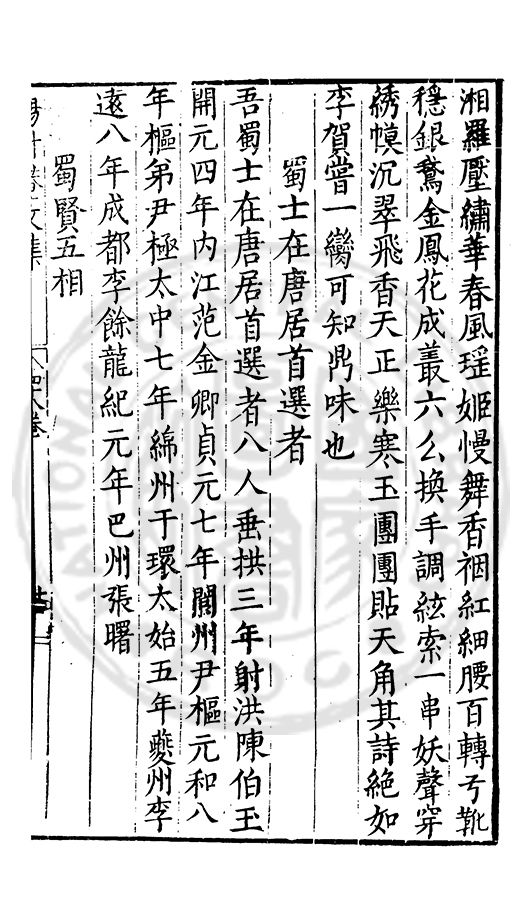 湘羅壓繡華春風瑶姬慢舞香裀紅細腰百轉弓靴
穩銀鵞金鳳花成叢六么換手調絃索一串妖聲穿
綉幙沉翠飛香天正樂寒玉團團貼天角其詩絶如
李賀嘗一臠可知鼎味也
蜀士在唐居首選者
吾蜀士在唐居首選者八人垂拱三年射洪陳伯玉
開元四年内江范金卿貞元七年閬州尹樞元和八
年樞弟尹極太中七年綿州于環太始五年夔州李
遠八年成都李餘龍紀元年巴州張曙
蜀賢五相
文集
卷